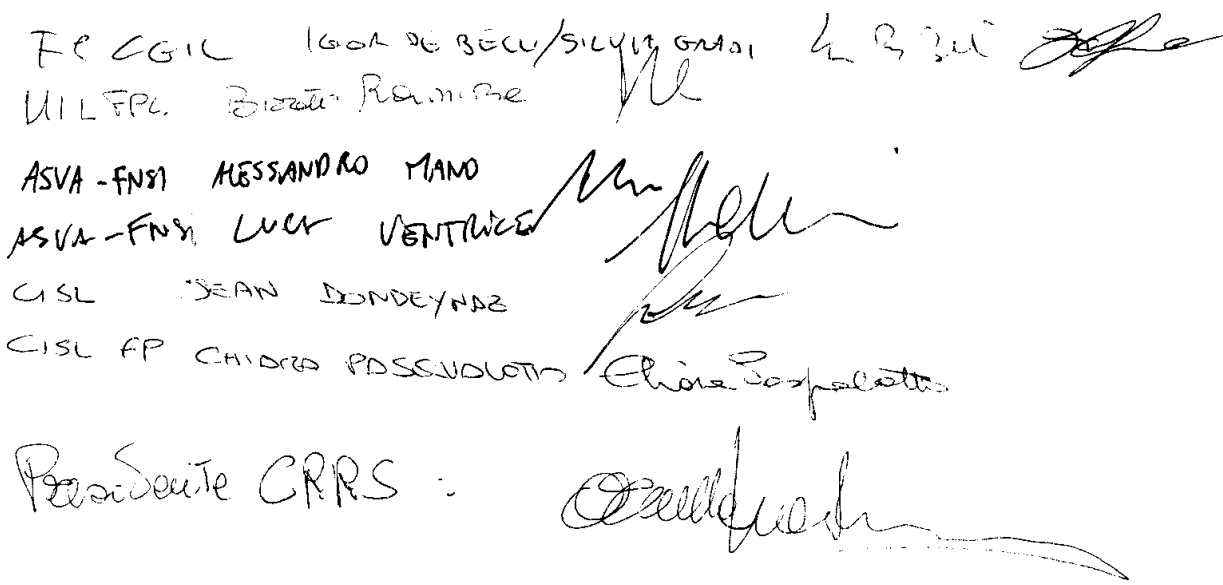 FP CGIL IGOR DE BELLI/SILVIA GRADI
UIL FPL Ramira
ASVA-FNSI ALESSANDRO MANO
ASVA-FNSI LUCA VENTRICE
CISL JEAN DONDEYNAZ
CISL FP CHIARA PASQUALOTTO Chiara Pasqualotto
Presidente CRRS :